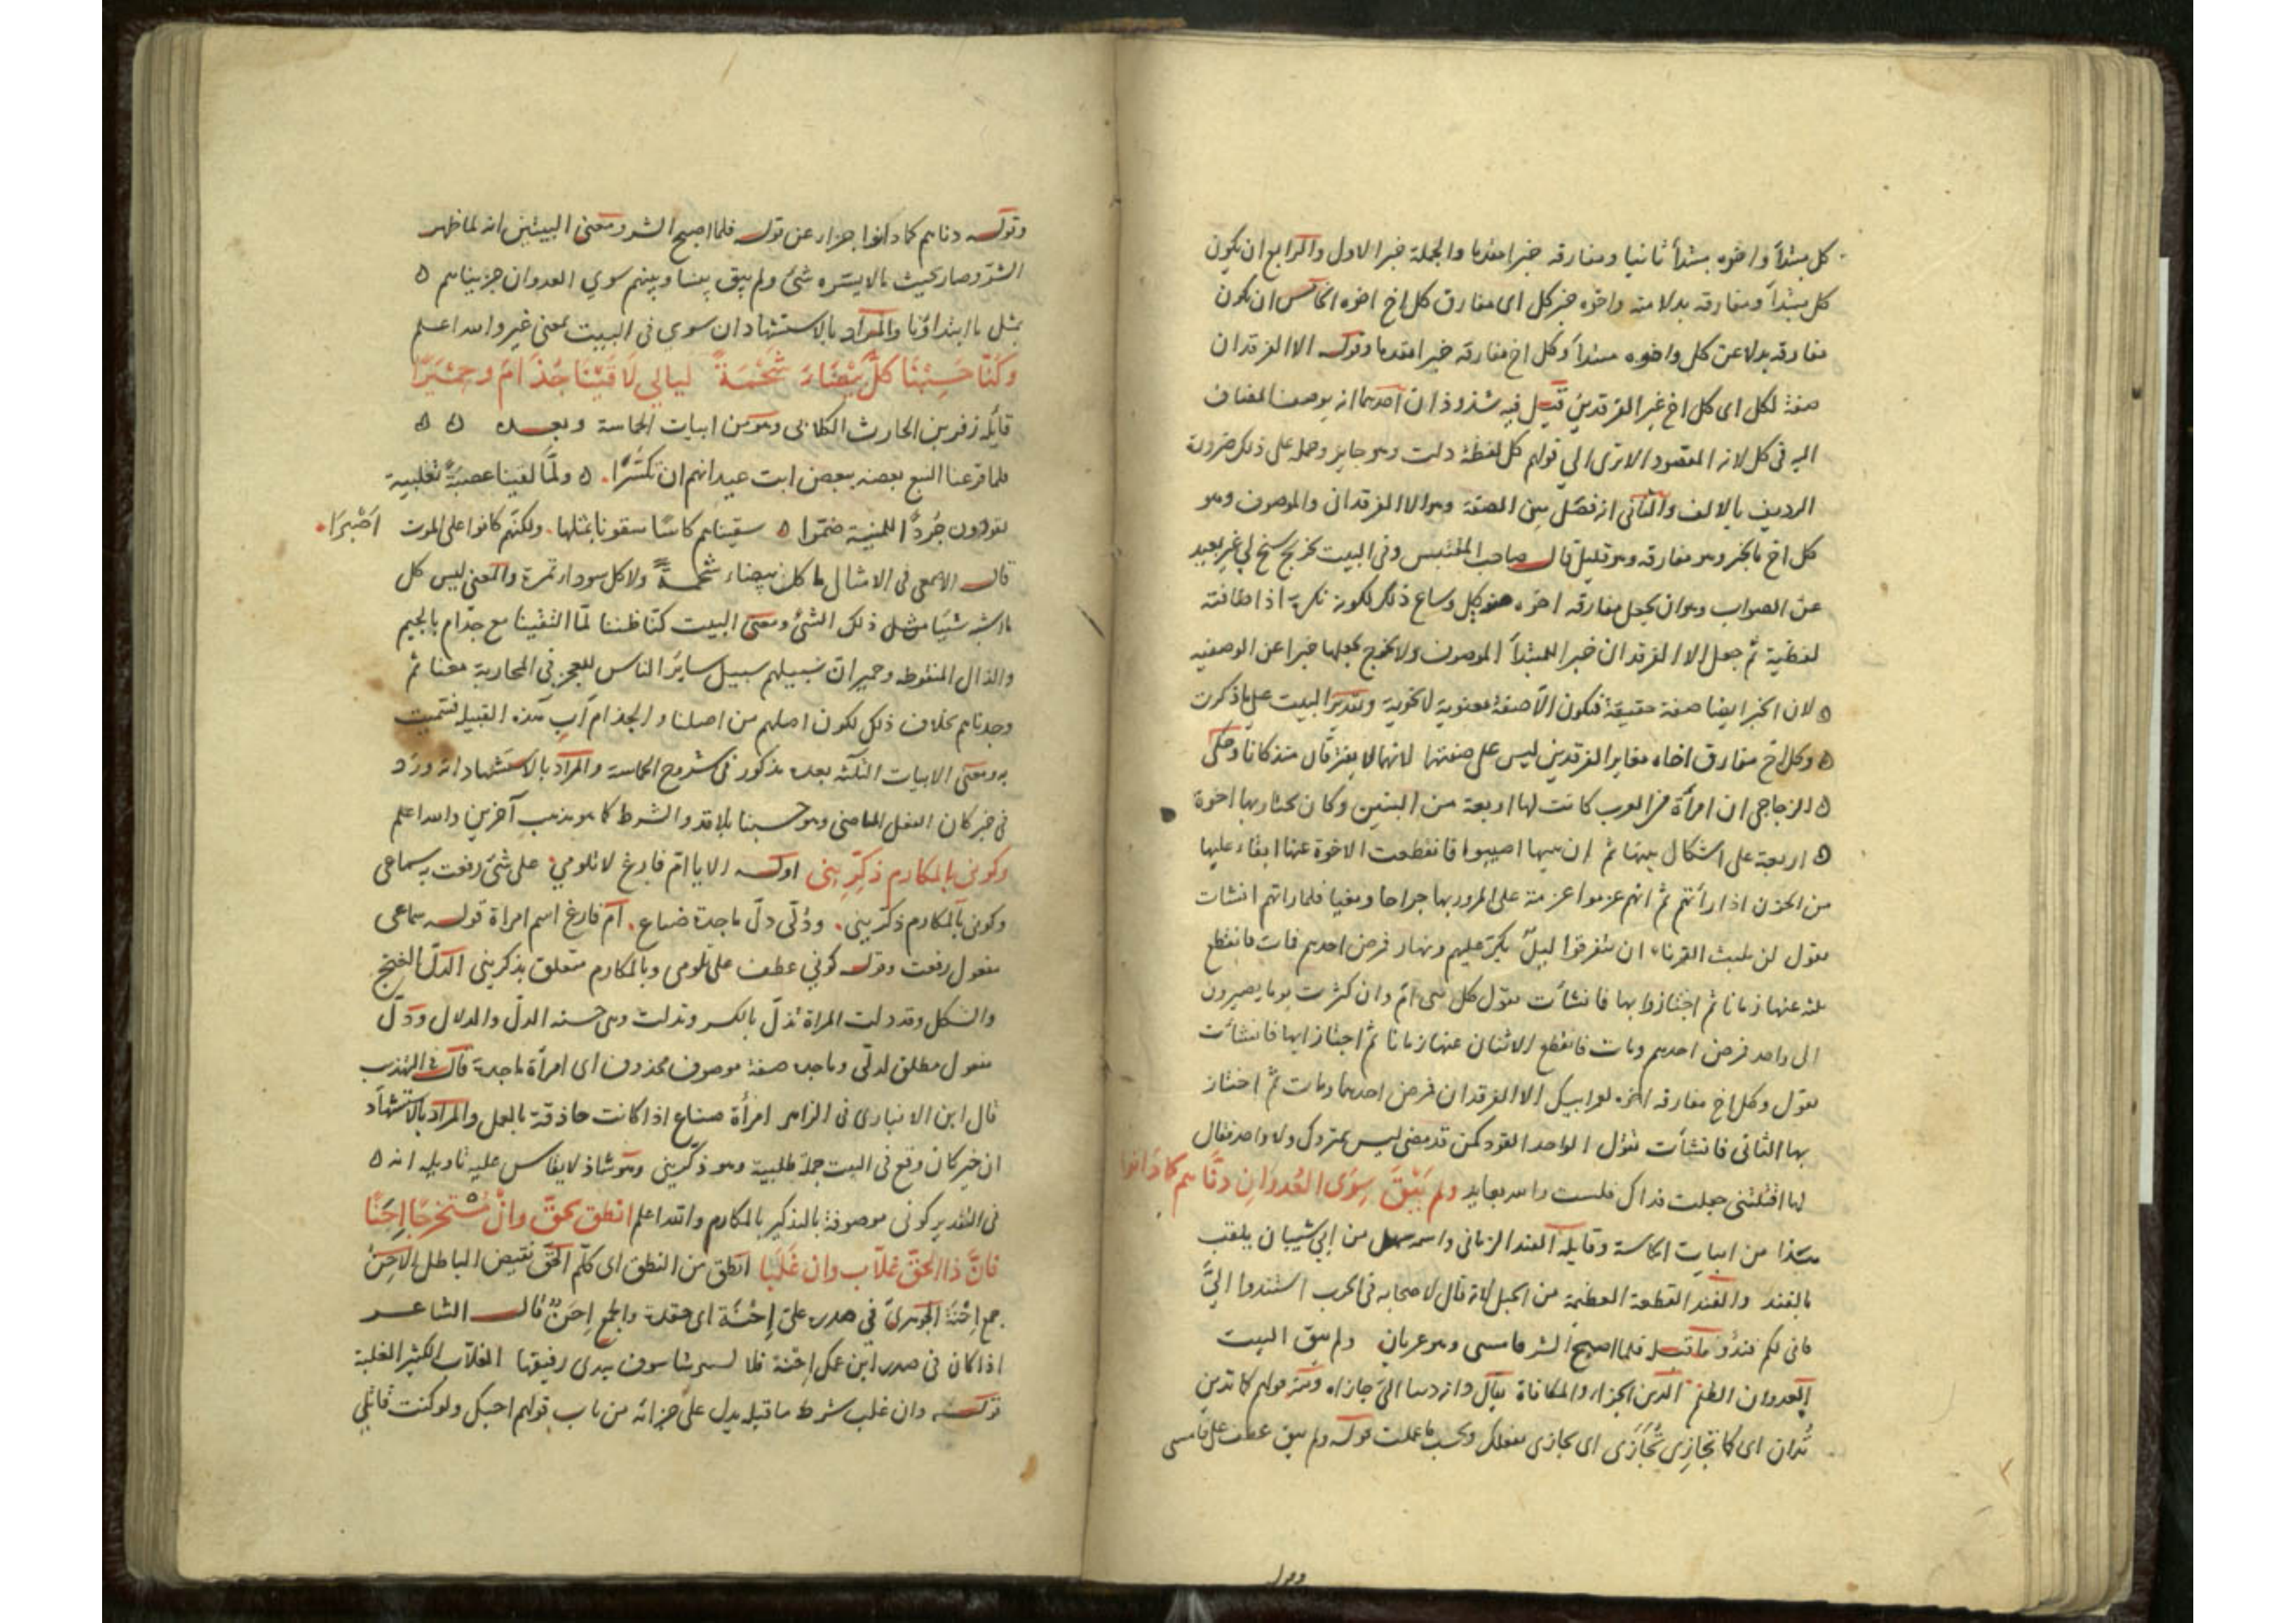 كل مبتدأ واخوه مبتدأ ثانيا ومفارقه خبرا مقدما والجملة خبر الاول والرابع ان يكون
كل مبتدأ ومفارقه بدلا منه واخوه خبر كل اى مفارق كل اخ اخوه الخامس ان يكون
مفارقه بدلا عن كل واخوه مبتدأ وكل اخ مفارقه خبرا مقدما وقوله الا الفرقدان
صفة لكل اى كل اخ غير الفرقدين قيل فيه شذوذان احدهما انه يوصف المضاف
اليه فى كل لانه المقصود الا ترى الي قولهم كل لفظة دلت وهو جايز وحمله على ذلك ضرورة
الرديف بالالف والثانى انه فصل بين الصفة وهو الا الفرقدان والموصوف وهو
كل اخ بالخبر وهو مفارقه وهو قليل قال صاحب المقتبس وفى البيت تخريج سنح لي غير بعيد
عن الصواب وهو ان يجعل مفارقه اخوه صفة كل وساغ ذلك لكونه نكرة اذ اضافته
لفظية ثم جعل الا الفرقدان خبرا للمبتدأ الموصوف ولا يخرج بجعلها خبرا عن الوصفيه
لان الخبر ايضا صفة حقيقة فتكون الا صفة معنوية لا نحوية وتقدير البيت على ما ذكرت
وكل اخ مفارق اخاه مغاير الفرقدين ليس على صفتهما لانهما لا يفترقان منذ كانا وحكى
الزجاجى ان امرأة من العرب كانت لها اربعة من البنين وكان يجتاز بها اخوة
اربعة على اشكال بنيها ثم ان بنيها اصيبوا فانقطعت الاخوة عنها ابقاء عليها
من الحزن اذا رأتهم ثم انهم عزموا عزمة على المرور بها فلما راتهم انشات
تقول لن يلبث القرناء ان يتفرقوا ليل يكر عليهم ونهار فمرض احدهم فمات فانقطع
ثلثة عنها زمانا ثم اجتازوا بها فانشأت تقول كل بنى ام وان كثرت يوما يصيرون
الى واحد فمرض احدهم ومات فانقطع الاثنان عنها زمانا ثم اجتازا بها فانشأت
تقول وكل اخ مفارقه اخوه لعمر ابيك الا الفرقدان فمرض احدهما ومات ثم اجتاز
بها الثانى فانشأت تقول الواحد الفرد كمن قد مضى ليس بمتروك ولا واحد فقال
لها اقتلتنى جعلت فداك فلست والله بعايد ولم يبق سوى العدوان دناهم كما دانوا
هذا من ابيات الحماسة وقايله الفند الزمانى واسمه سهل من ابي شيبان يلقب
بالفند والفند القطعة العظيمة من الجبل لانه قال لاصحابه فى الحرب استندوا الىّ
فانى لكم فند وما قبله فلما اصبح الشر فامسى وهو عريان ولم يبق البيت
العدوان الظلم الدين الجزاء والمكافاة يقال دانه دينا اى جازاه ومنه قولهم كما تدين
تدان اى كما تجازي تجازى اى تجازى بفعلك وبحسب ما عملت قوله ولم يبق عطف على فامسى
وقوله
وقوله دناهم كما دانوا جزاء عن قوله فلما اصبح الشر ومعنى البيتين انه لما ظهر
الشر وصار بحيث لا يستره شئ ولم يبق بيننا وبينهم سوي العدوان جزيناهم
بمثل ما ابتداؤنا والمراد بالاستشهاد ان سوي فى البيت بمعنى غير والله اعلم
وكنّا حسبنا كل بيضاء شحمة ليالي لاقينا جذام وحميرا
قايله زفر بن الحارث الكلابى وهو من ابيات الحماسة وبعده
فلما قرعنا النبع بعضه ببعض ابت عيدانهم ان تكسّرا ولمّا لقينا عصبة تغلبية
يقودون جردا للمنية ضمّرا سقيناهم كاسا سقونا بمثلها ولكنهم كانوا على الموت اصبرا
قال الاصمعى فى الامثال ما كل بيضاء شحمة ولا كل سوداء تمرة والمعنى ليس كل
ما اشبه شيئا مثل ذلك الشئ ومعنى البيت كنّا ظننا لمّا التقينا مع جذام بالجيم
والذال المنقوطه وحمير ان سبيلهم سبيل ساير الناس للعجز فى المحاربة معنا ثم
وجدناهم بخلاف ذلك لكون اصلهم من اصلنا والجذام اب هذه القبيله فسميت
به ومعنى الابيات الثلثه بعده مذكور فى شروح الحماسة والمراد بالاستشهاد انه ورد
فى خبر كان الفعل الماضى وهو حسبنا بلا قد والشرط كما هو مذهب آخرين والله اعلم
وكونى بالمكارم ذكّرينى اوله الا يا امّ فارغ لا تلومي على شئ رفعت به سماعى
وكونى بالمكارم ذكّرينى ودلّى دلّ ماجدة صناع ام فارغ اسم امراة قوله سماعى
مفعول رفعت وقوله كوني عطف على تلومى وبالمكارم متعلق بذكرينى الدلّ الغنج
والشكل وقد دلت المراة تدلّ بالكسر وتدلت وهى حسنه الدلّ والدلال ودلّ
مفعول مطلق لدلّى وماجده صفة موصوف محذوف اى امرأة ماجدة قال فى المهذب
قال ابن الانبارى فى الزاهر امرأة صناع اذا كانت حاذقة بالعمل والمراد بالاستشهاد
ان خبر كان وقع فى البيت جملة طلبية وهو ذكّرينى وهو شاذ لا يقاس عليه تاويله انه
فى التقدير كونى موصوفة بالتذكير بالمكارم والله اعلم انطق بحقّ وانْ مستخرجا اِحَنًا
فانّ ذا الحقّ غلّاب وان غُلِبا انطق من النطق اى كلّم الحقّ نقيض الباطل الاِحَن
جمع اِحْنة الجوهرىّ فى صدره علىّ اِحْنَة اى حقد والجمع اِحَنٌ قال الشاعر
اذا كان فى صدر ابن عمك اِحْنة فلا تستثرها سوف يبدى دفينها الغلّاب الكثير الغلبة
قوله وان غلب شرط ما قبله يدل على جزائه من باب قولهم احبك ولو كنت قاتلي